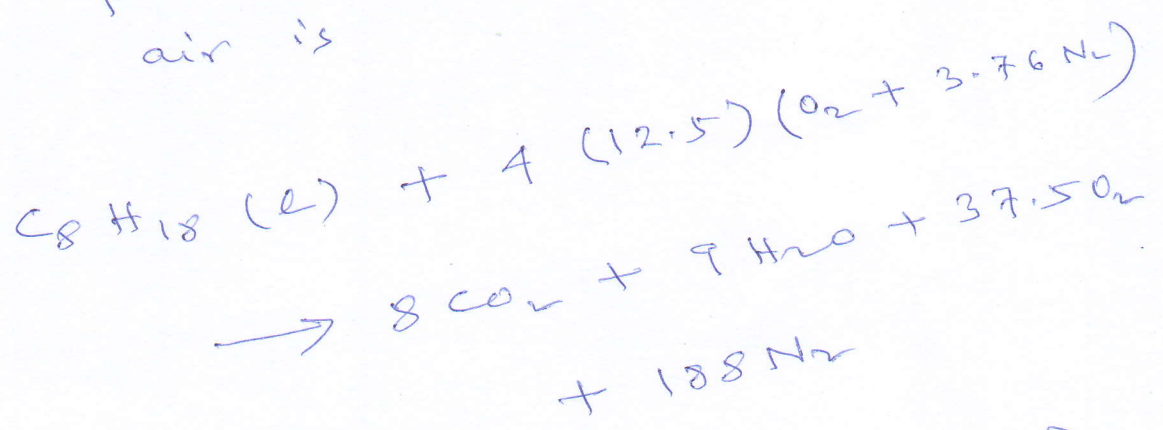 air is
C8 H18 (l) + 4 (12.5) (O2 + 3.76 N2)
→ 8 CO2 + 9 H2O + 37.5 O2
+ 188 N2